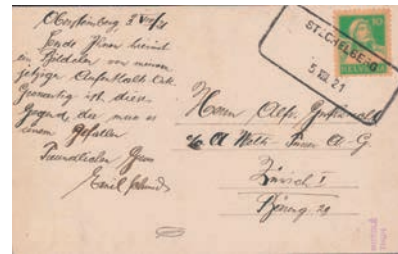 Obersteinberg, 3 VIII/21
Sende Ihnen hiemit
ein Bildchen von meinem
jetzigen Aufenthalts Ort.
Grossartig ist diese
Gegend der muss es
einem gefallen
Freundlichen Gruss
Emil
STECHELBERG
5 VIII. 21
10
HELVETIA
Herrn Alfr.
c/o A Welti - Furrer A-G.
Zürich I
29